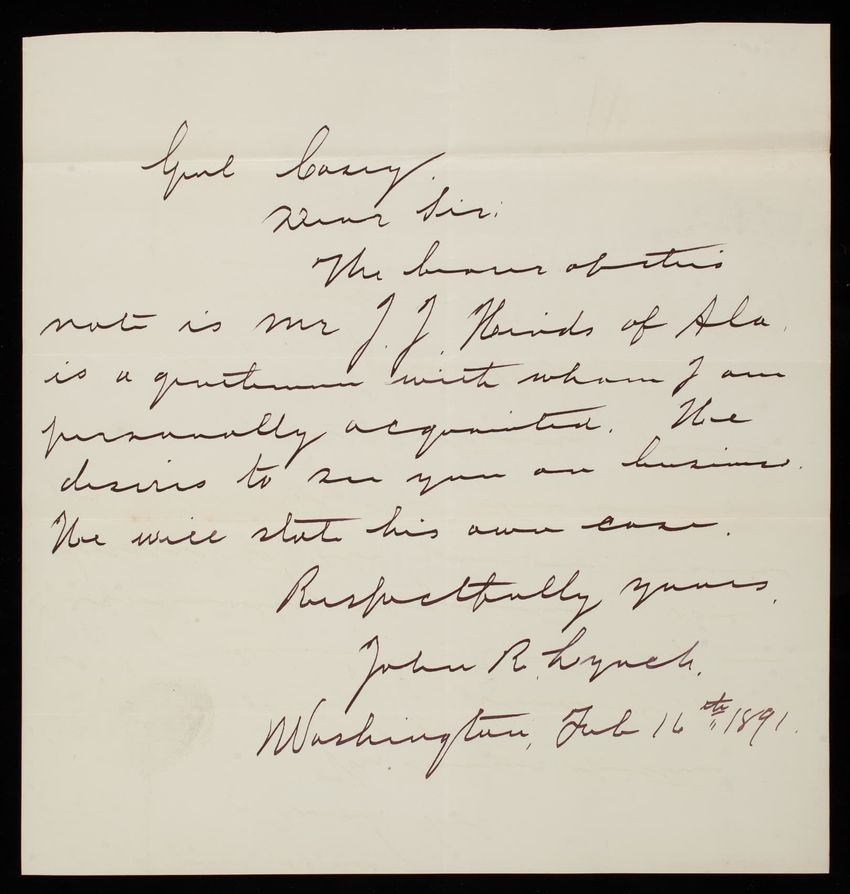 Genl Casey.
Dear Sir:
The bearer of this
note is Mr J. J. Hinds of Ala.
is a gentleman with whom I am
personally acquainted. He
desires to see you on business.
He will state his own case.
Respectfully yours,
John R. Lynch.
Washington, Feb 16th 1891.